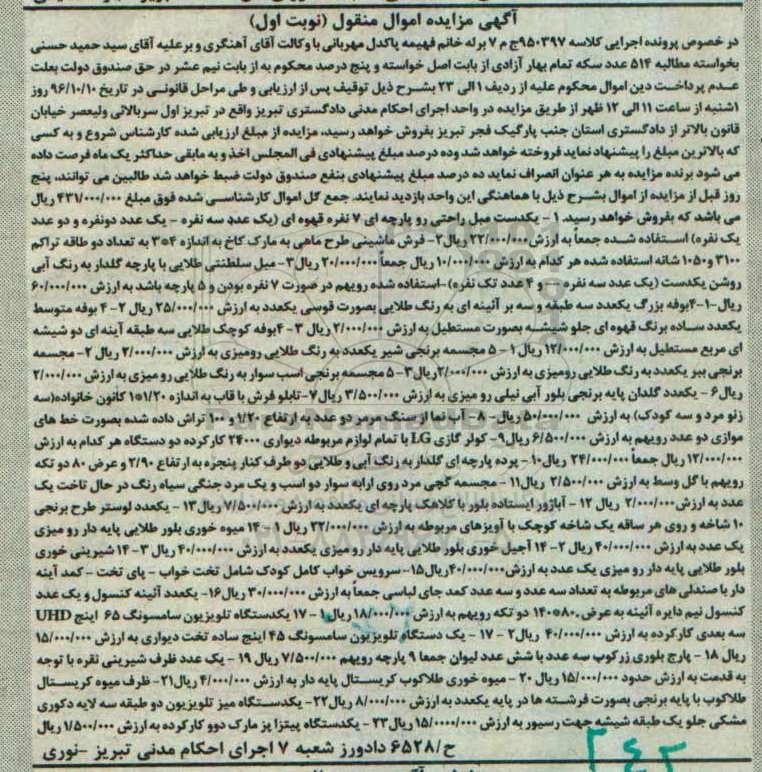 آگهی مزایده اموال منقول (نوبت اول)
در خصوص پرونده اجرایی کلاسه ۹۵۰۳۹۷ج م ۷ برله خانم فهیمه پاکدل مهربانی با وکالت آقای آهنگری و برعلیه آقای سید حمید حسنی
بخواسته مطالبه ۵۱۴ عدد سکه تمام بهار آزادی از بابت اصل خواسته و پنج درصد محکوم به از بابت نیم عشر در حق صندوق دولت بعلت
عـدم پرداخـت دین اموال محکوم علیه از ردیف ۱ الی ۲۳ بشـرح ذیل توقیف پس از ارزیابی و طی مراحل قانونـی در تاریخ ۹۶/۱۰/۱۰ روز
۱شنبه از ساعت ۱۱ الی ۱۲ ظهر از طریق مزایده در واحد اجرای احکام مدنی دادگستری تبریز واقع در تبریز اول سربالائی ولیعصر خیابان
قانون بالاتر از دادگستری استان جنب پارکینگ فجر تبریز بفروش خواهد رسید، مزایده از مبلغ ارزیابی شده کارشناس شروع و به کسی
که بالاترین مبلغ را پیشنهاد نماید فروخته خواهد شد وده درصد مبلغ پیشنهادی فی المجلس اخذ و به مابقی حداکثر یک ماه فرصت داده
می شود برنده مزایده به هر عنوان انصراف نماید ده درصد مبلغ پیشنهادی بنفع صندوق دولت ضبط خواهد شد طالبین می توانند، پنج
روز قبل از مزایده از اموال بشـرح ذیل با هماهنگی این واحد بازدید نمایند. جمع کل اموال کارشناسـی شده فوق مبلغ ۴۳۱/۰۰۰/۰۰۰ ریال
می باشد که بفروش خواهد رسید. ۱ - یکدست مبل راحتی رو پارچه ای ۷ نفره قهوه ای (یک عدد سه نفره - یک عدد دونفره و دو عدد
یک نفره) اسـتفاده شـده جمعاً به ارزش ۲۲/۰۰۰/۰۰۰ ریال۲- فرش ماشینی طرح ماهی به مارک کاخ به اندازه ۴*۳ به تعداد دو طاقه تراکم
۳۱۰۰ و۱۰۵۰ شانه استفاده شده هر کدام به ارزش ۱۰/۰۰۰/۰۰۰ ریال جمعاً ۲۰/۰۰۰/۰۰۰ ریال۳- مبل سلطنتی طلایی با پارچه گلدار به رنگ آبی
روشن یکدست (یک عدد سه نفره - و ۴ عدد تک نفره)-استفاده شده رویهم در صورت ۷ نفره بودن و ۵ پارچه باشد به ارزش ۶۰/۰۰۰/۰۰۰
ریال-۱-۴بوفه بزرگ یکعدد سه طبقه و سه بر آئینه ای به رنگ طلایی بصورت قوسی یکعدد به ارزش ۲۵/۰۰۰/۰۰۰ ریال ۲- ۴ بوفه متوسط
یکعدد سـاده برنگ قهوه ای جلو شیشـه بصورت مستطیل به ارزش ۲/۰۰۰/۰۰۰ ریال ۳ - ۴بوفه کوچک طلایی سه طبقه آینه ای دو شیشه
ای مربع مستطیل به ارزش ۱۲/۰۰۰/۰۰۰ ریال ۱ - ۵ مجسمه برنجی شیر یکعدد به رنگ طلایی رومیزی به ارزش ۲/۰۰۰/۰۰۰ ریال ۲- مجسمه
برنجی ببر یکعدد به رنگ طلایی رومیزی به ارزش ۲/۰۰۰/۰۰۰ریال۳- ۵ مجسمه برنجی اسب سوار به رنگ طلایی رو میزی به ارزش ۲/۰۰۰/۰۰۰
ریال۶ - یکعدد گلدان پایه برنجی بلور آبی نیلی رو میزی به ارزش ۳/۵۰۰/۰۰۰ ریال۷-تابلو فرش با قاب به اندازه ۱/۲۰*۱ کانون خانواده(سه
زنو مرد و سه کودک) به ارزش ۵۰/۰۰۰/۰۰۰ ریال- ۸ - آب نما از سنگ مرمر دو عدد به ارتفاع ۱/۲۰ و ۱۰۰ تراش داده شده بصورت خط های
موازی دو عدد رویهم به ارزش ۶/۵۰۰/۰۰۰ ریال۹- کولر گازی LG با تمام لوازم مربوطه دیواری ۲۴۰۰۰ کارکرده دو دستگاه هر کدام به ارزش
۱۲/۰۰۰/۰۰۰ ریال جمعاً ۲۴/۰۰۰/۰۰۰ ریال۱۰ - پرده پارچه ای گلدار به رنگ آبی و طلایی دو طرف کنار پنجره به ارتفاع ۲/۹۰ و عرض ۸۰ دو تکه
رویهم با گل وسط به ارزش ۲/۵۰۰/۰۰۰ ریال۱۱ - مجسمه گچی مرد روی ارابه سوار دو اسب و یک مرد جنگی سیاه رنگ در حال تاخت یک
عدد به ارزش ۲/۰۰۰/۰۰۰ ریال ۱۲ - آباژور ایستاده بلور با کلاهک پارچه ای یکعدد به ارزش ۷/۵۰۰/۰۰۰ ریال ۱۳ - یکعدد لوستر طرح برنجی
۱۰ شاخه و روی هر ساقه یک شاخه کوچک با آویزهای مربوطه به ارزش ۲۲/۰۰۰/۰۰۰ ریال ۱ - ۱۴ میوه خوری بلور طلایی پایه دار رو میزی
یک عدد به ارزش ۴۰/۰۰۰/۰۰۰ ریال ۲- ۱۴ آجیل خوری بلور طلایی پایه دار رو میزی یکعدد به ارزش ۴۰/۰۰۰/۰۰۰ ریال ۳- ۱۴ شیرینی خوری
بلور طلایی پایه دار رو میزی یک عدد به ارزش۴۰/۰۰۰/۰۰۰ ریال۱۵- سرویس خواب کامل کودک شامل تخت خواب - پای تخت - کمد آینه
دار با صندلی های مربوطه به تعداد سه عدد و سه عدد کمد جای لباسی جمعا به ارزش ۳۰/۰۰۰/۰۰۰ ریال۱۶- یکعدد آئینه کنسول و یک عدد
کنسول نیم دایره آئینه به عرض ۸۰*۱۴۰ دو تکه رویهم به ارزش ۱۸/۰۰۰/۰۰۰ ریال ۱- ۱۷ یکدستگاه تلویزیون سامسونگ ۶۵ اینچ UHD
سه بعدی کارکرده به ارزش ۴۰/۰۰۰/۰۰۰ ریال۲ - ۱۷ - یک دستگاه تلویزیون سامسونگ ۴۵ اینچ ساده تخت دیواری به ارزش ۱۵/۰۰۰/۰۰۰
ریال ۱۸ - پارچ بلوری زرکوب سه عدد با شش عدد لیوان جمعا ۹ پارچه رویهم ۷/۵۰۰/۰۰۰ ریال ۱۹ - یک عدد ظرف شیرینی نقره با توجه
به قدمت به ارزش حدود ۱۵/۰۰۰/۰۰۰ ریال ۲۰ - میوه خوری طلاکوب کریسـتال پایه دار به ارزش ۴/۰۰۰/۰۰۰ ریال۲۱- ظرف میوه کریسـتال
طلاکوب با پایه برنجی بصورت فرشـته ها در پایه یکعدد به ارزش ۸/۰۰۰/۰۰۰ ریال۲۲- یکدسـتگاه میز تلویزیون دو طبقه سه لایه دکوری
مشکی جلو یک طبقه شیشه جهت رسیور به ارزش ۱۵/۰۰۰۰/۰۰۰ ریال۲۳ - یکدستگاه پیتزا پز مارک دوو کارکرده به ارزش ۱/۵۰۰/۰۰۰ ریال
ح/۶۵۲۸ دادورز شعبه ۷ اجرای احکام مدنی تبریز -نوری
۲۴۲